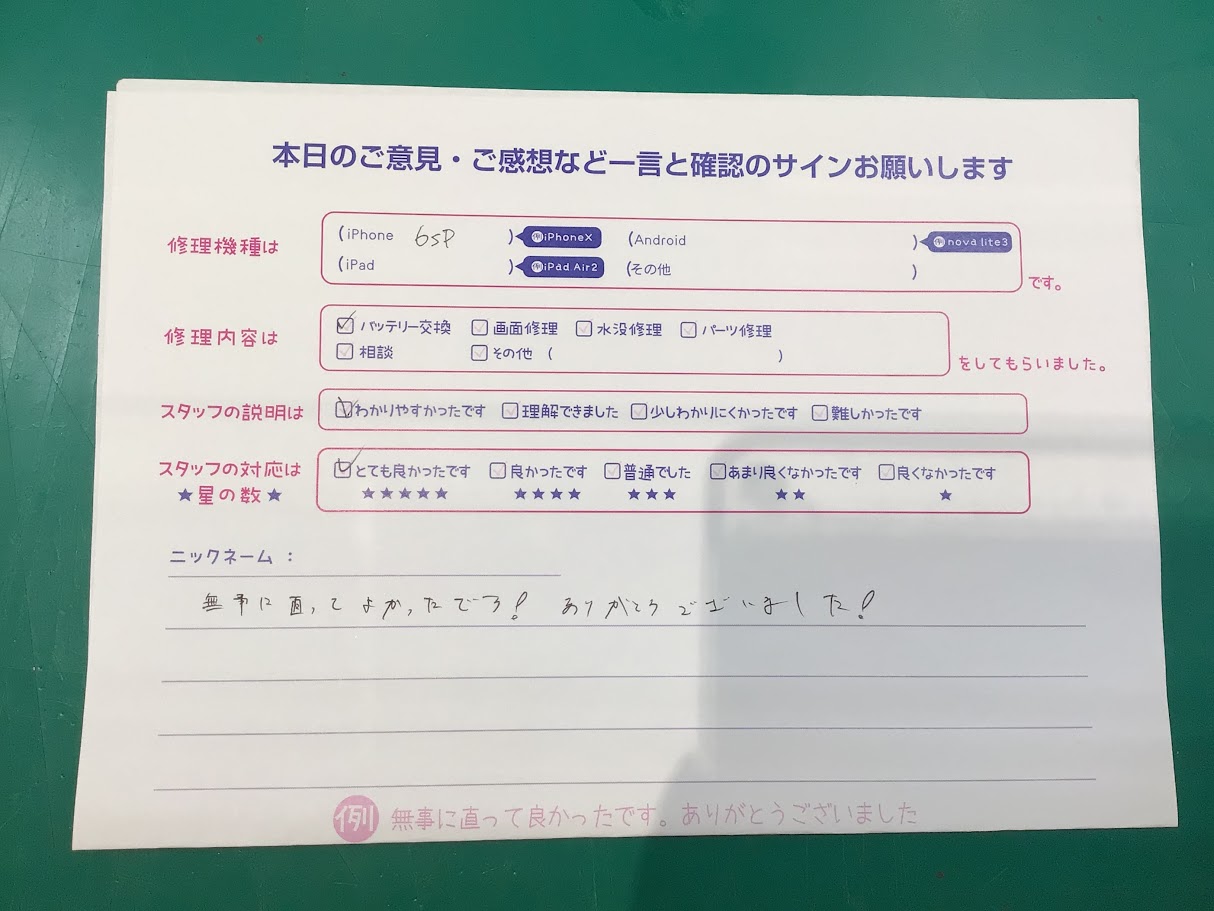 本日のご意見・ご感想など一言と確認のサインお願いします
修理機種は
(iPhone 6sP ) 例iPhoneX (Android ) 例nova lite3
(iPad ) 例iPad Air2 (その他 )
です。
修理内容は
バッテリー交換 画面修理 水没修理 パーツ修理
相談 その他 ( )
をしてもらいました。
スタッフの説明は
わかりやすかったです 理解できました 少しわかりにくかったです 難しかったです
スタッフの対応は
★星の数★
とても良かったです 良かったです 普通でした あまり良くなかったです 良くなかったです
★★★★★ ★★★★ ★★★ ★★ ★
ニックネーム：
無事に直ってよかったです! ありがとうございました!
例 無事に直って良かったです。ありがとうございました